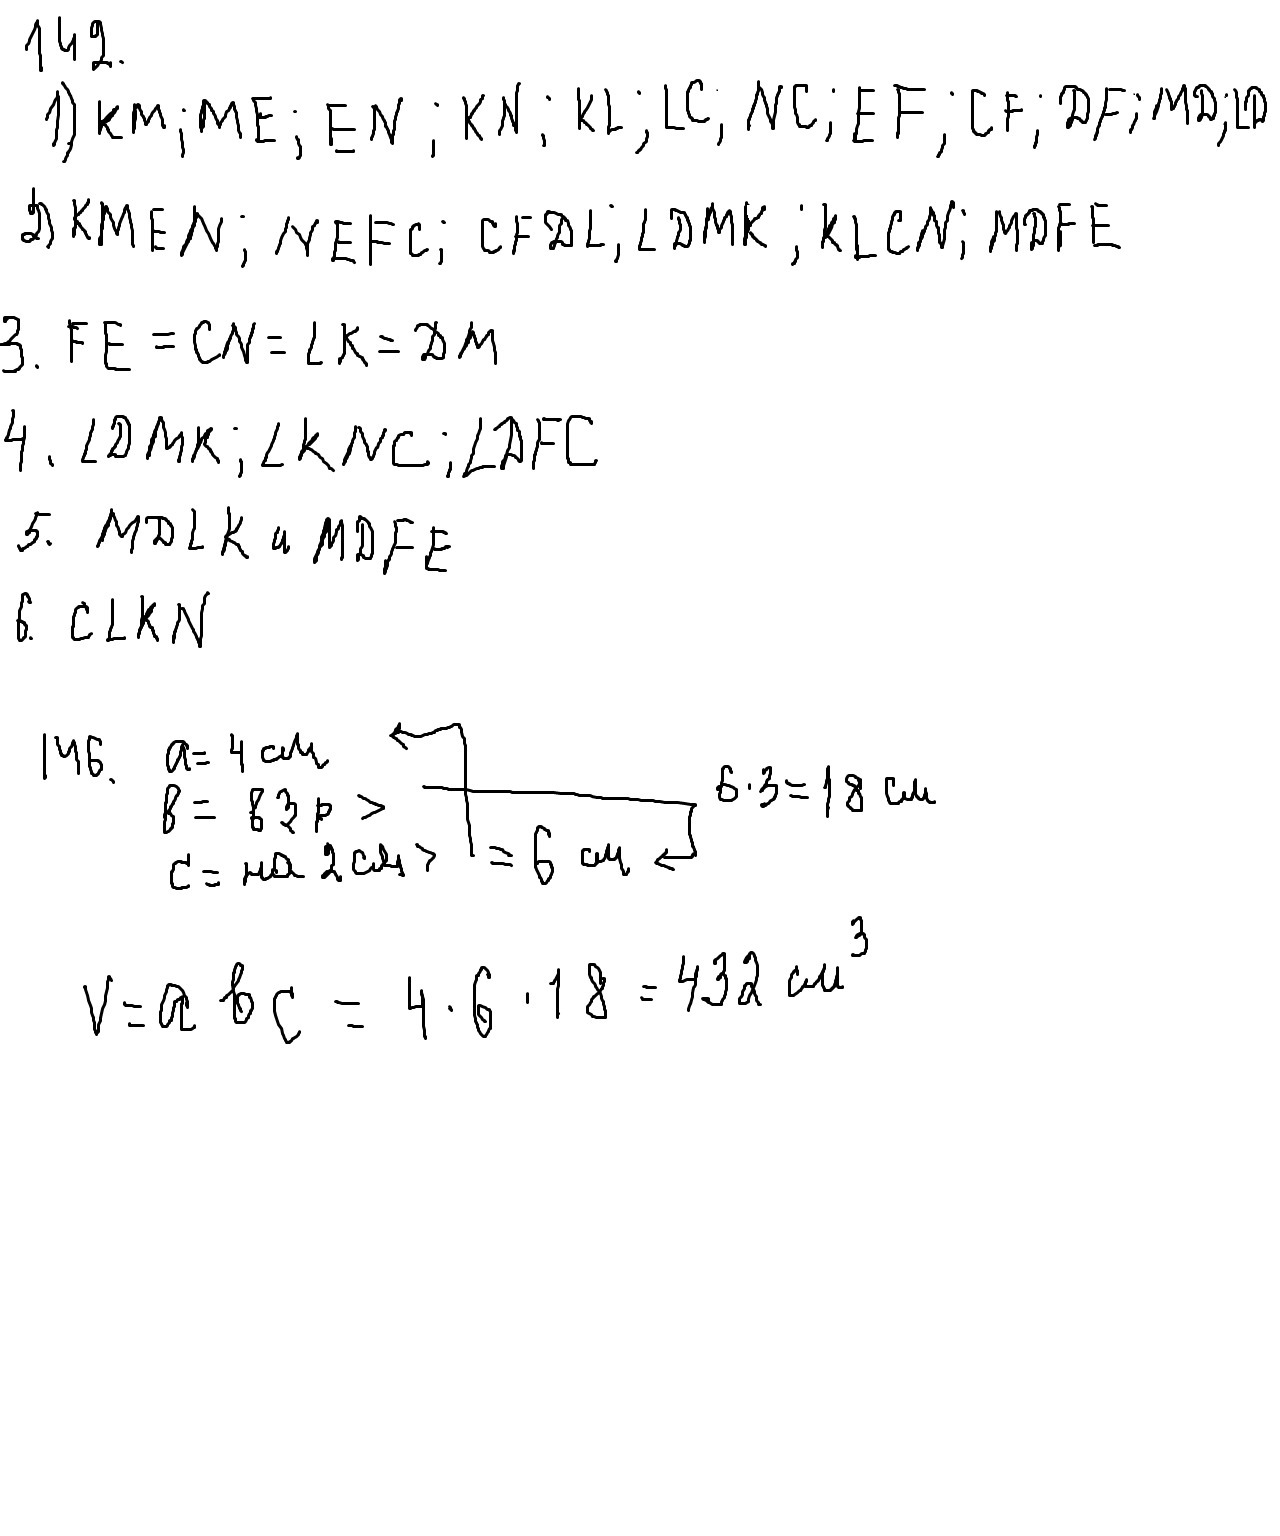 142.
1) KM; ME; EN; KN; KL; LC; NC; EF; CF; DF; MD; LD
2) KMEN; NEFC; CFDL; LDMK; KLCN; MDFE
3. FE = CN = LK = DM
4. LDMK; LKNC; LDFC
5. MDLK и MDFE
6. CLKN
146. a = 4 см
в = в 3 р > 6·3 = 18 см
c = на 2 см > = 6 см
V = a в c = 4 · 6 · 18 = 432 см³